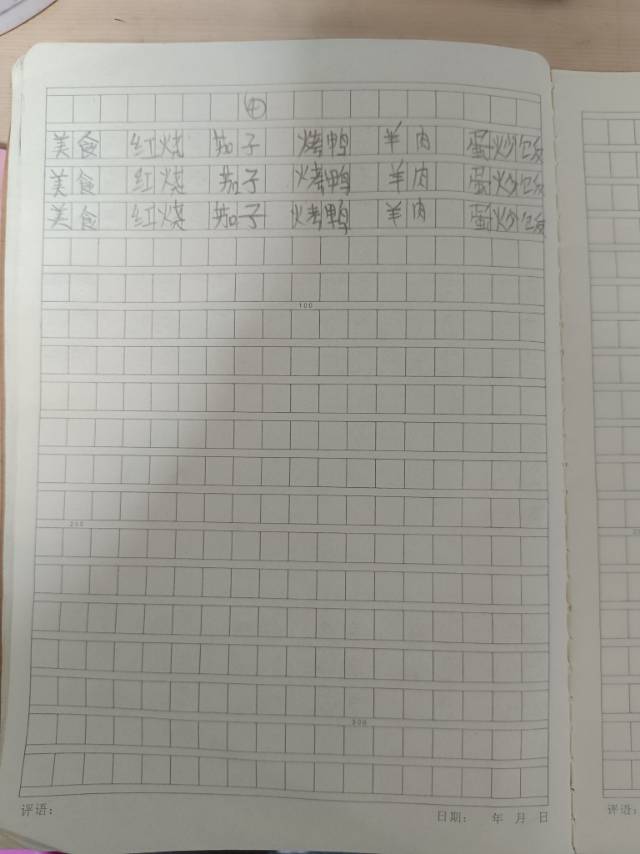 ④
美食 红烧 茄子 烤鸭 羊肉 蛋炒饭
美食 红烧 茄子 烤鸭 羊肉 蛋炒饭
美食 红烧 茄子 烤鸭 羊肉 蛋炒饭
100
200
300
评语： 日期： 年 月 日
评语：